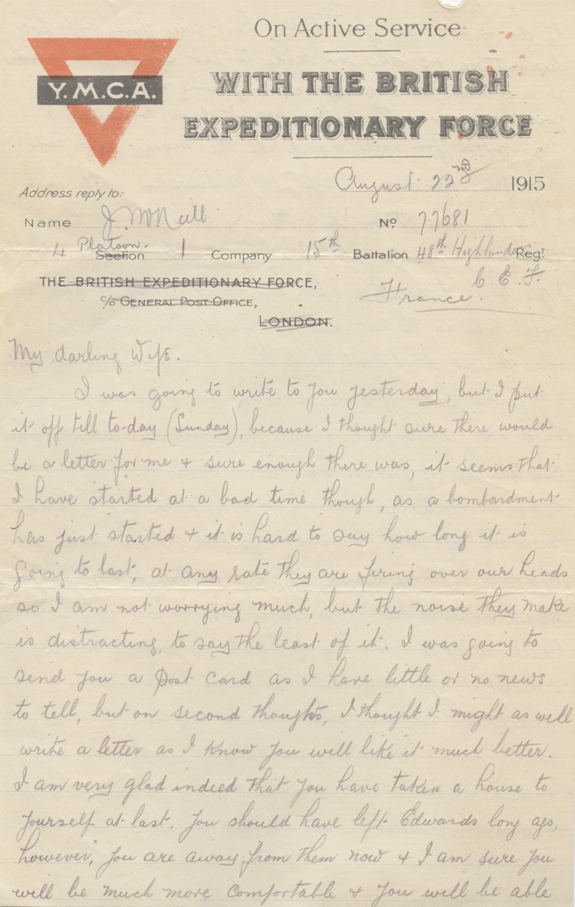 On Active Service
Y.M.C.A.
WITH THE BRITISH
EXPEDITIONARY FORCE
August 22nd 1915
Address reply to:
Name J. McNeill No 77681
4 Platoon. Section 1 Company 15th Battalion 48th Highlanders Regt
THE BRITISH EXPEDITIONARY FORCE, C E F.
France.
c/o GENERAL POST OFFICE,
LONDON.
My darling Wife.
I was going to write to you yesterday, but I put
it off till to-day (Sunday), because I thought sure there would
be a letter for me & sure enough there was, it seems that
I have started at a bad time though, as a bombardment
has just started & it is hard to say how long it is
going to last, at any rate they are firing over our heads
so I am not worrying much, but the noise they make
is distracting, to say the least of it. I was going to
send you a Post Card as I have little or no news
to tell, but on second thoughts, I thought I might as well
write a letter as I know you will like it much better.
I am very glad indeed that you have taken a house to
yourself at last. You should have left Edwards long ago,
however, you are away from them now & I am sure you
will be much more comfortable & you will be able